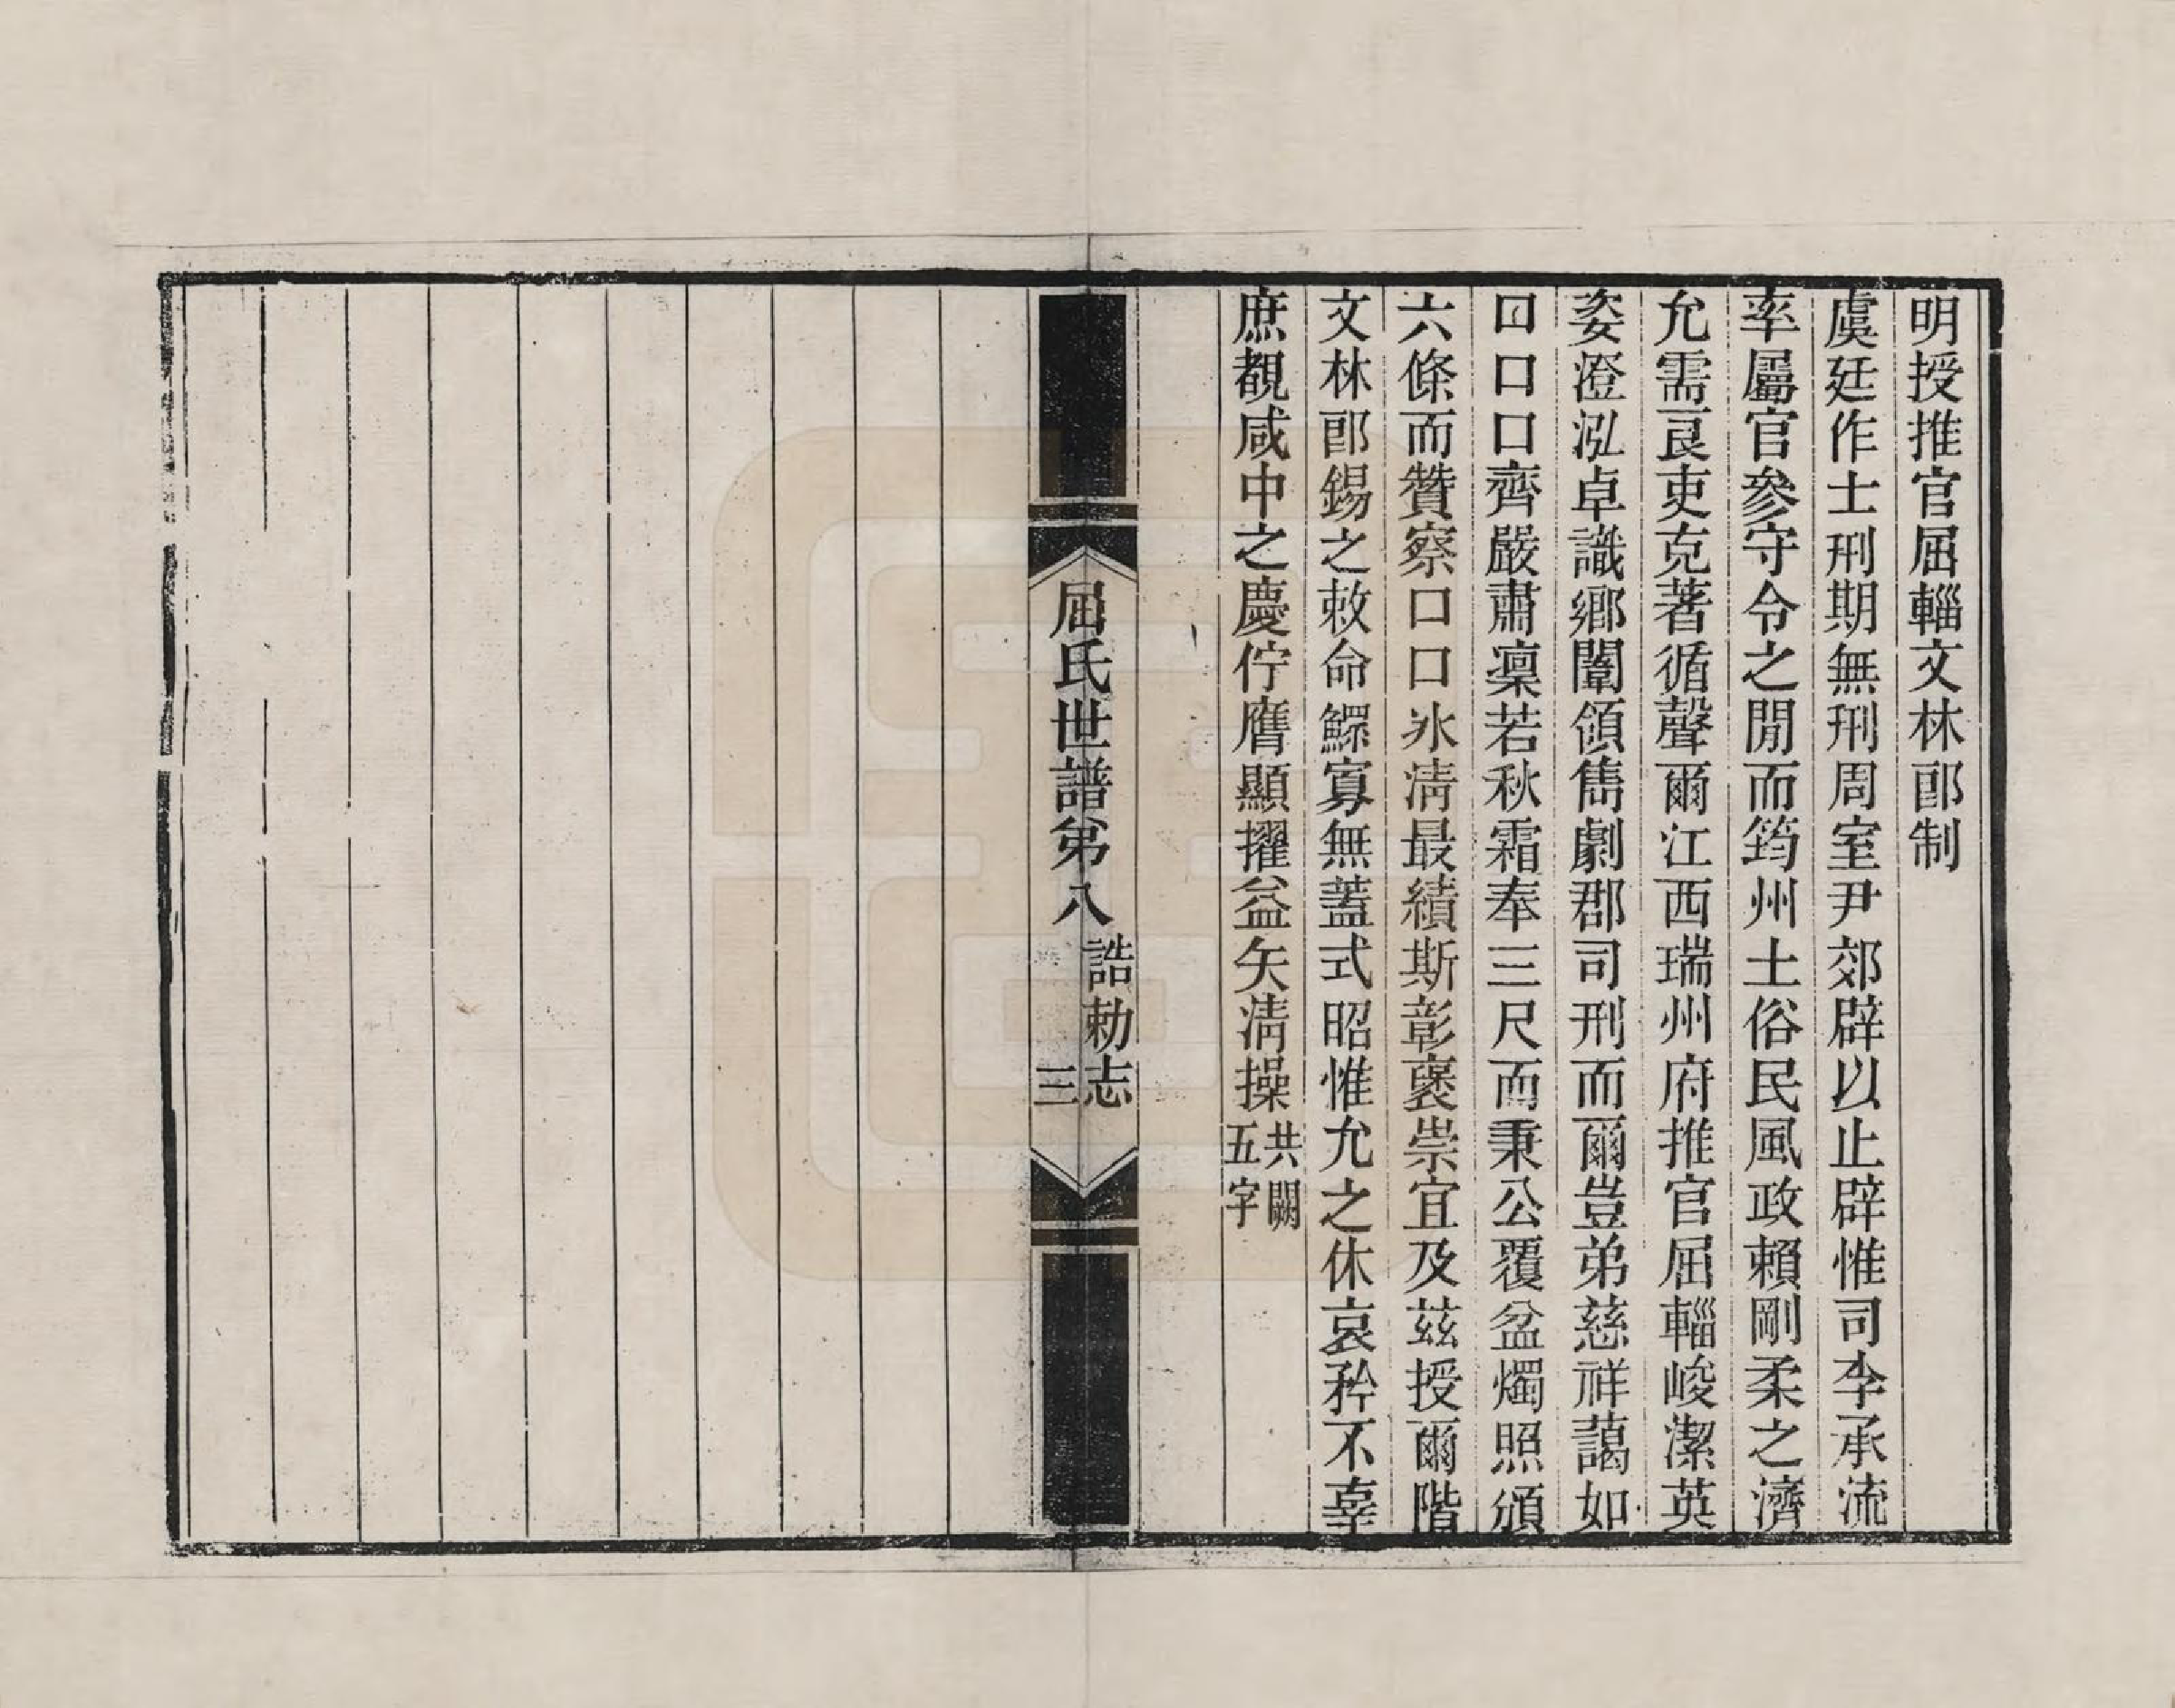 明授推官屈輜文林郎制
虞廷作士刑期無刑周室尹郊辟以止辟惟司李承流
率屬官參守令之閒而筠州土俗民風政賴剛柔之濟
允需良吏克著循聲爾江西瑞州府推官屈輜峻潔英
姿澄泓卓識鄉闈領雋劇郡司刑而爾豈弟慈祥藹如
口口口齊嚴肅凜若秋霜奉三尺而秉公覆盆燭照頒
六條而贊察口口氷清最績斯彰褒崇宜及茲授爾階
文林郎錫之敕命鰥寡無蓋式昭惟允之休哀矜不辜
庶覩咸中之慶佇膺顯擢益矢清操共闕五字
屈氏世譜弟八 誥勅志 三